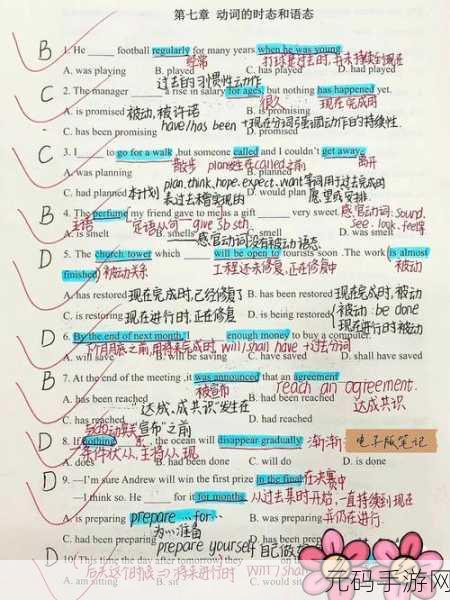 第七章 动词的时态和语态
B 1. He ____ football regularly for many years when he was young.
经常 打球是过去时,并未持续到现在
A. was playing B. played C. has played D. had played
过去的习惯性动作
C 2. The manager ____ a rise in salary for ages, but nothing has happened yet.
很久 现在完成时
A. is promised 被动,被许诺 B. is promising
C. has been promising have/has been +现在分词强调动作的持续性.
C 3. I ____ to go for a walk ,but someone called and I couldn't get away.
散步 plan发生在called之前 离开
A. was planning B. planned
plan,think,hope,expect,want等词用于过去完成时
C. had planned 本计划 D. would plan
表过去未曾实现的愿望或安排.
B 4. The perfume my friend gave to me as a gift ____ very sweet. 感官动词: sound.
主语 定语从句 give sb sth. see. look. feel等
A. is smelt B. smells D. smelt
感官动词没有被动语态.
D 5. The church tower which ____ will be open to tourists soon .The work is almost
finished. 被动关系 工程还未修完,正在修复中 被动
A. has restored 现在完成时,已经修复了 B. has been restored 现在完成时,被动
C. is restoring 现在进行时,正在修复 D. is being restored 被动: be done
现在进行时被动
D 6. By the end of next month, ____ enough money to buy a computer.
个月底之前,用将来完成时, will/shall have +过去分词
A. will save B. will be saving C. have saved D. shall have saved
B 7. At the end of the meeting ,it was announced that an agreement ____
被宣布 reach an agreement.
A. has been reached 达成共识
C. has reached D. had reached
"达成,成共识"发生在"宣布"之前
D 8. If nothing ____, the ocean will disappear gradually 渐渐 电子版笔记
条件状从,主将从现
A. does B. had been done C. will do D. is done
D 9. —I'm sure Andrew will win the first prize in the final. 在决赛中
—I think so. He ____ for it for months. 从过去某时开始,一直持续到现在
并仍在进行.
A. is preparing B. was preparing
prepare ... for...
C. had been preparing 为…准备
prepare yourself 自己做
D 10. (This time the day after tomorrow) they
后天这个时候 => 将来进行时 Will / shall
A. am sitting B. sit
元码手游网